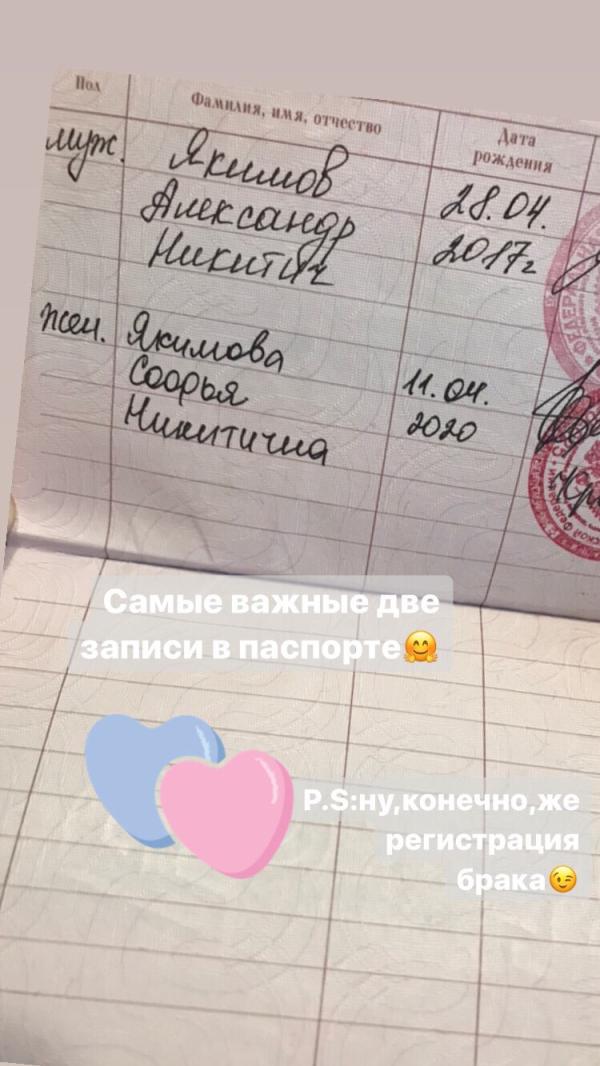 Пол Фамилия, имя, отчество Дата рождения
муж. Якимов 28.04.
Александр 2017г
Никитич
жен. Якимова
Софья 11.04.
Никитична 2020
Самые важные две
записи в паспорте🤗
P.S:ну,конечно,же
регистрация
брака😉